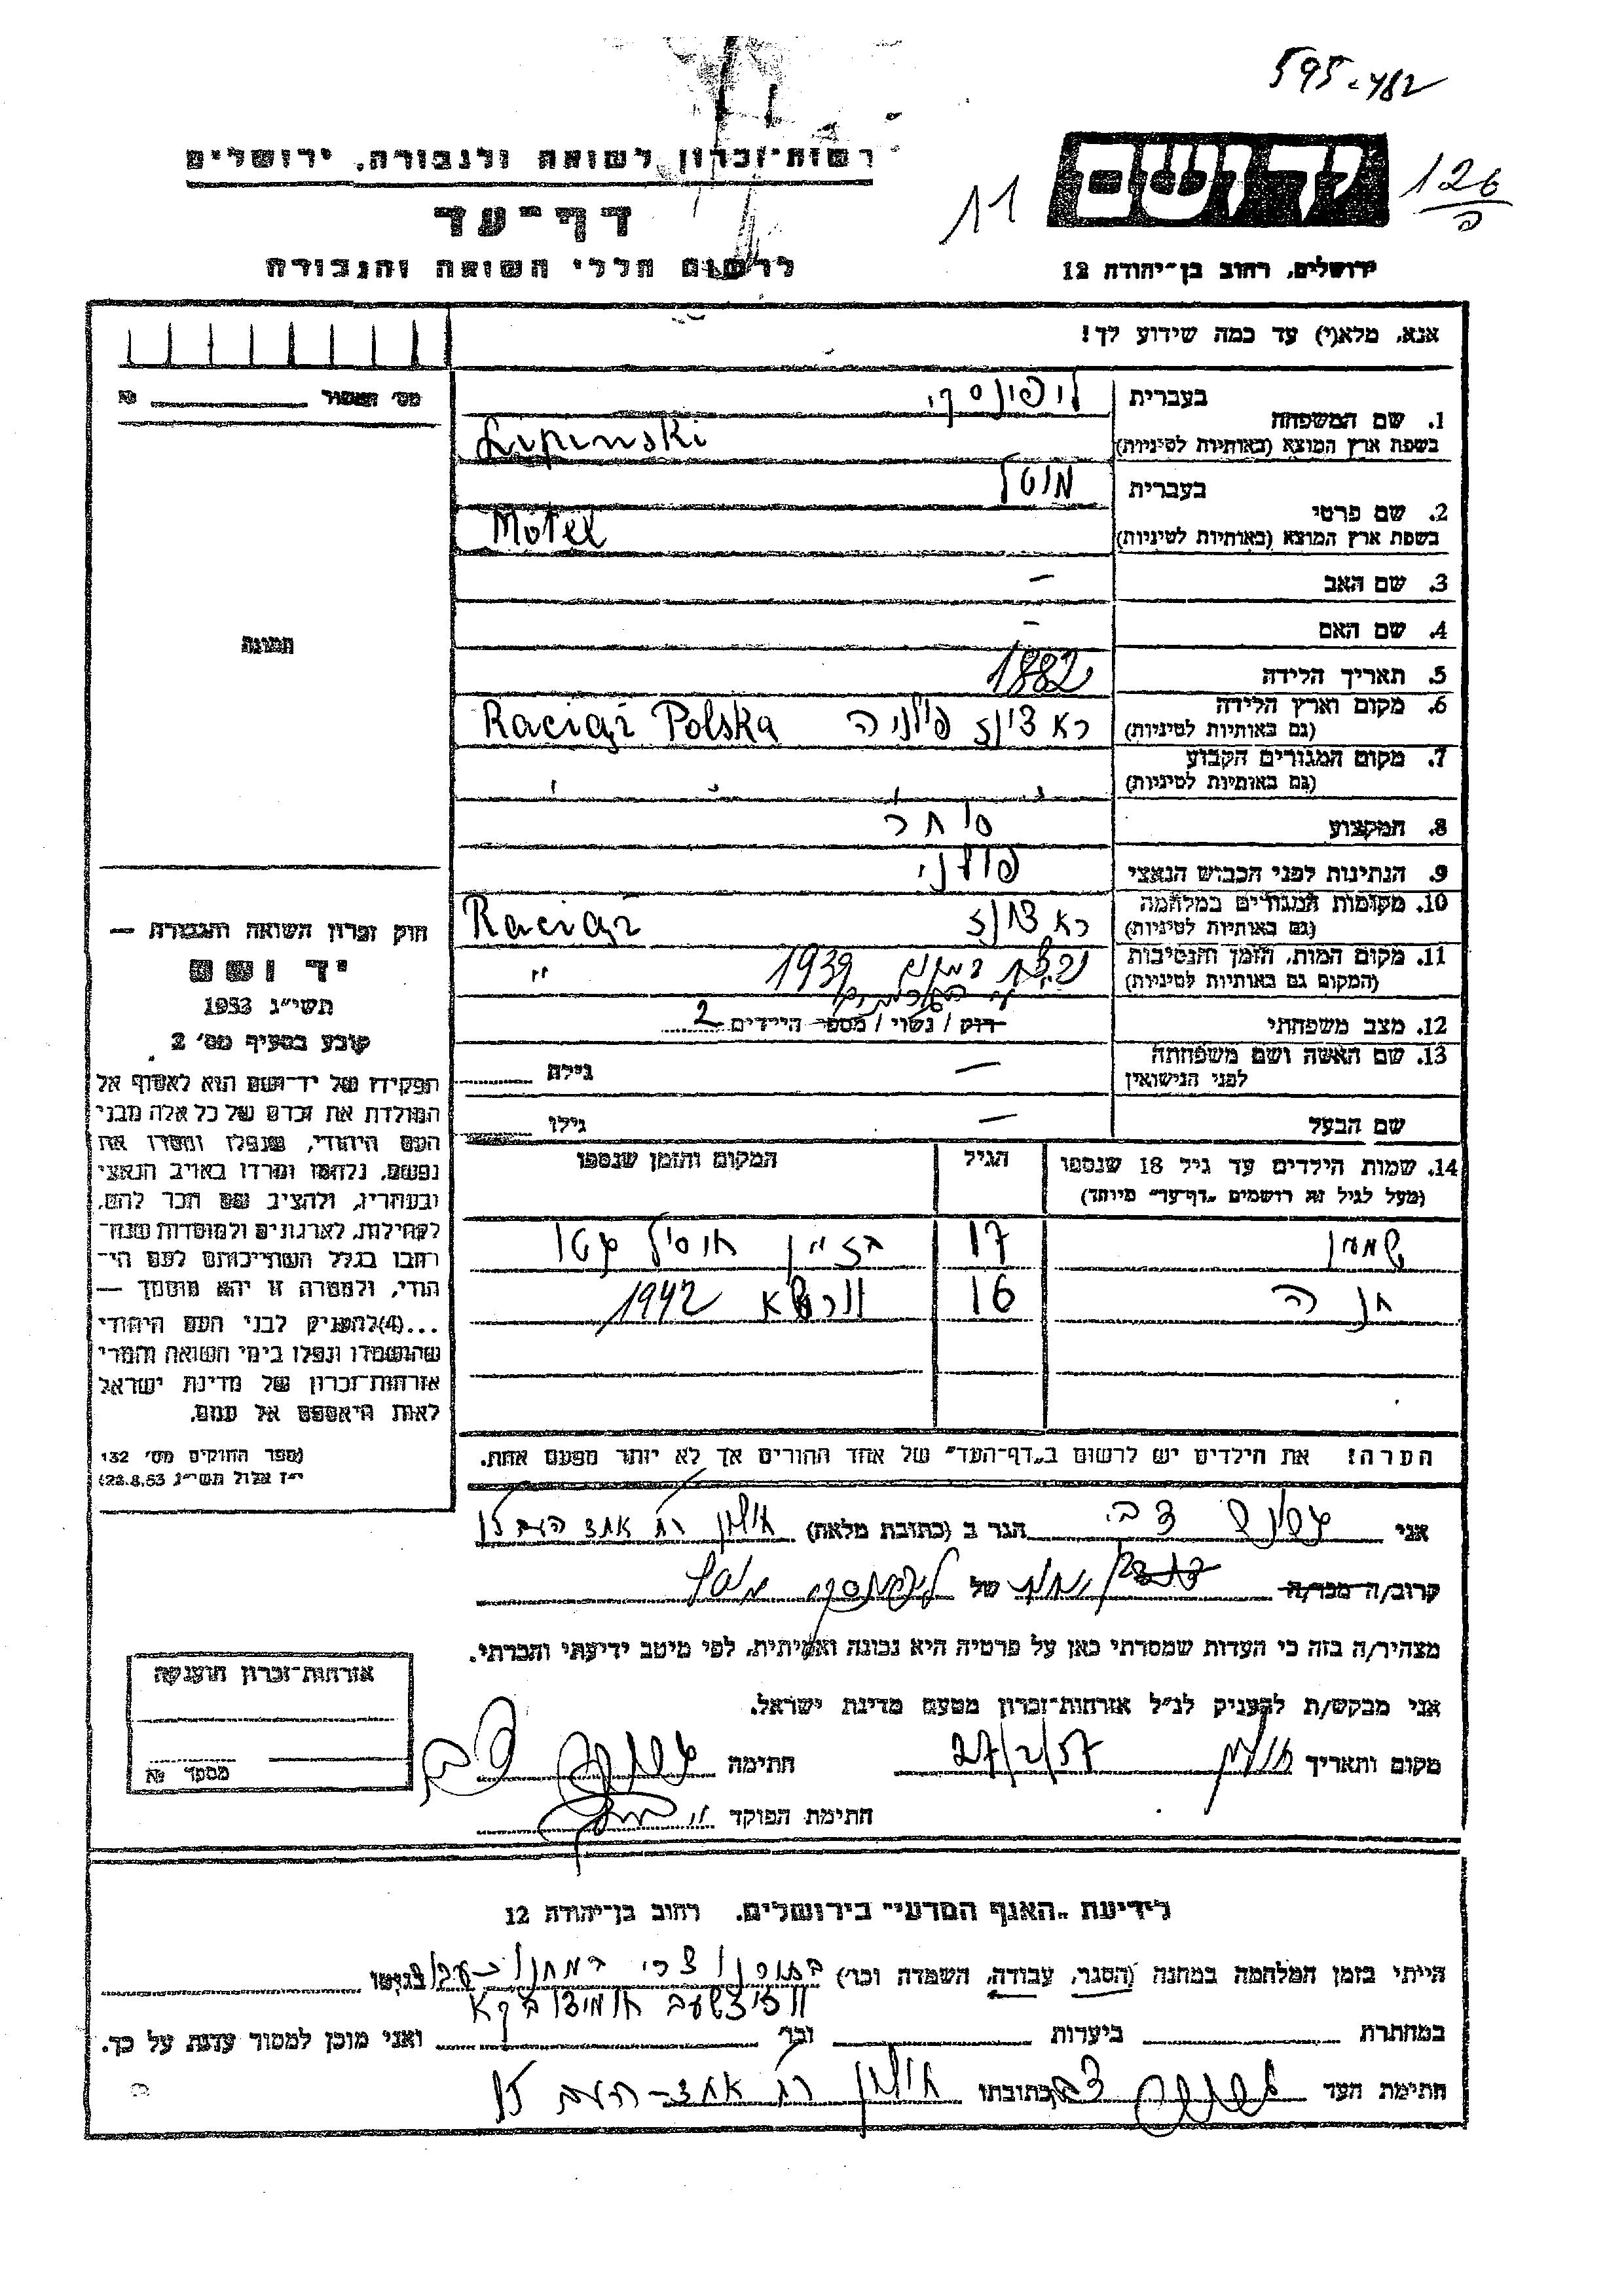 595-482
רשות־זכרון לשואה ולגבורה, ירושלים
יד ושם
126
ה
11
דף־עד
לרשום חללי השואה והגבורה
ירושלים, רחוב בן־יהודה 12
אנא, מלא(י) עד כמה שידוע לך!
מס' המסור №
1. שם המשפחה
בעברית ליפינסקי
בשפת ארץ המוצא (באותיות לטיניות) Lipinski
2. שם פרטי
בעברית מוטל
בשפת ארץ המוצא (באותיות לטיניות) Motel
3. שם האב —
4. שם האם —
תמונה
5. תאריך הלידה 1882
6. מקום וארץ הלידה
(גם באותיות לטיניות) ראציונז פולניה Raciąż Polska
7. מקום המגורים הקבוע
(גם באותיות לטיניות)
8. המקצוע סוחר
9. הנתינות לפני הכבוש הנאצי פולני
10. מקומות המגורים במלחמה
(גם באותיות לטיניות) ראציונז Raciąż
11. מקום המות, הזמן והנסיבות
(המקום גם באותיות לטיניות) 1939 "
12. מצב משפחתי רוק / נשוי / מספר הילדים 2
13. שם האשה ושם משפחתה
לפני הנישואין — גילה
שם הבעל — גילו
14. שמות הילדים עד גיל 18 שנספו
(מעל לגיל זה רושמים "דף־עד" מיוחד)
הגיל
המקום והזמן שנספו
שמעון 17
חנה 16 וורשא 1942
הערה! את הילדים יש לרשום ב"דף־העד" של אחד ההורים אך לא יותר מפעם אחת.
חוק זכרון השואה והגבורה —
יד ושם
תשי"ג 1953
קובע בסעיף מס' 2
תפקידו של יד־ושם הוא לאסוף אל
המולדת את זכרם של כל אלה מבני
העם היהודי, שנפלו ומסרו את
נפשם, נלחמו ומרדו באויב הנאצי
ובעוזריו, ולהציב שם וזכר להם,
לקהילות, לארגונים ולמוסדות שנח־
רבו בגלל השתייכותם לעם הי־
הודי, ולמטרה זו יהא מוסמך —
...(4) להעניק לבני העם היהודי
שהושמדו ונפלו בימי השואה והמרי
אזרחות־זכרון של מדינת ישראל
לאות היאספם אל עמם.
(ספר החוקים מס' 132
י"ז אלול תשי"ג 28.8.53)
אני צבי הגר ב (כתובת מלאה) חולון רח אחד העם
קרוב/ה מכר/ה של ליפינסקי מוטל
מצהיר/ה בזה כי העדות שמסרתי כאן על פרטיה היא נכונה ואמיתית, לפי מיטב ידיעתי והכרתי.
אני מבקש/ת להעניק לנ"ל אזרחות־זכרון מטעם מדינת ישראל.
אזרחות־זכרון הוענקה
מספר №
מקום ותאריך חולון 27/2/57 חתימה
חתימת הפוקד
לידיעת "האגף המדעי" בירושלים, רחוב בן־יהודה 12
הייתי בזמן המלחמה במחנה (הסגר, עבודה, השמדה וכר') בגיטו
במחתרת ביערות וכר' ואני מוכן למסור עדות על כך.
חתימת העד צבי כתובתו חולון רח אחד־העם